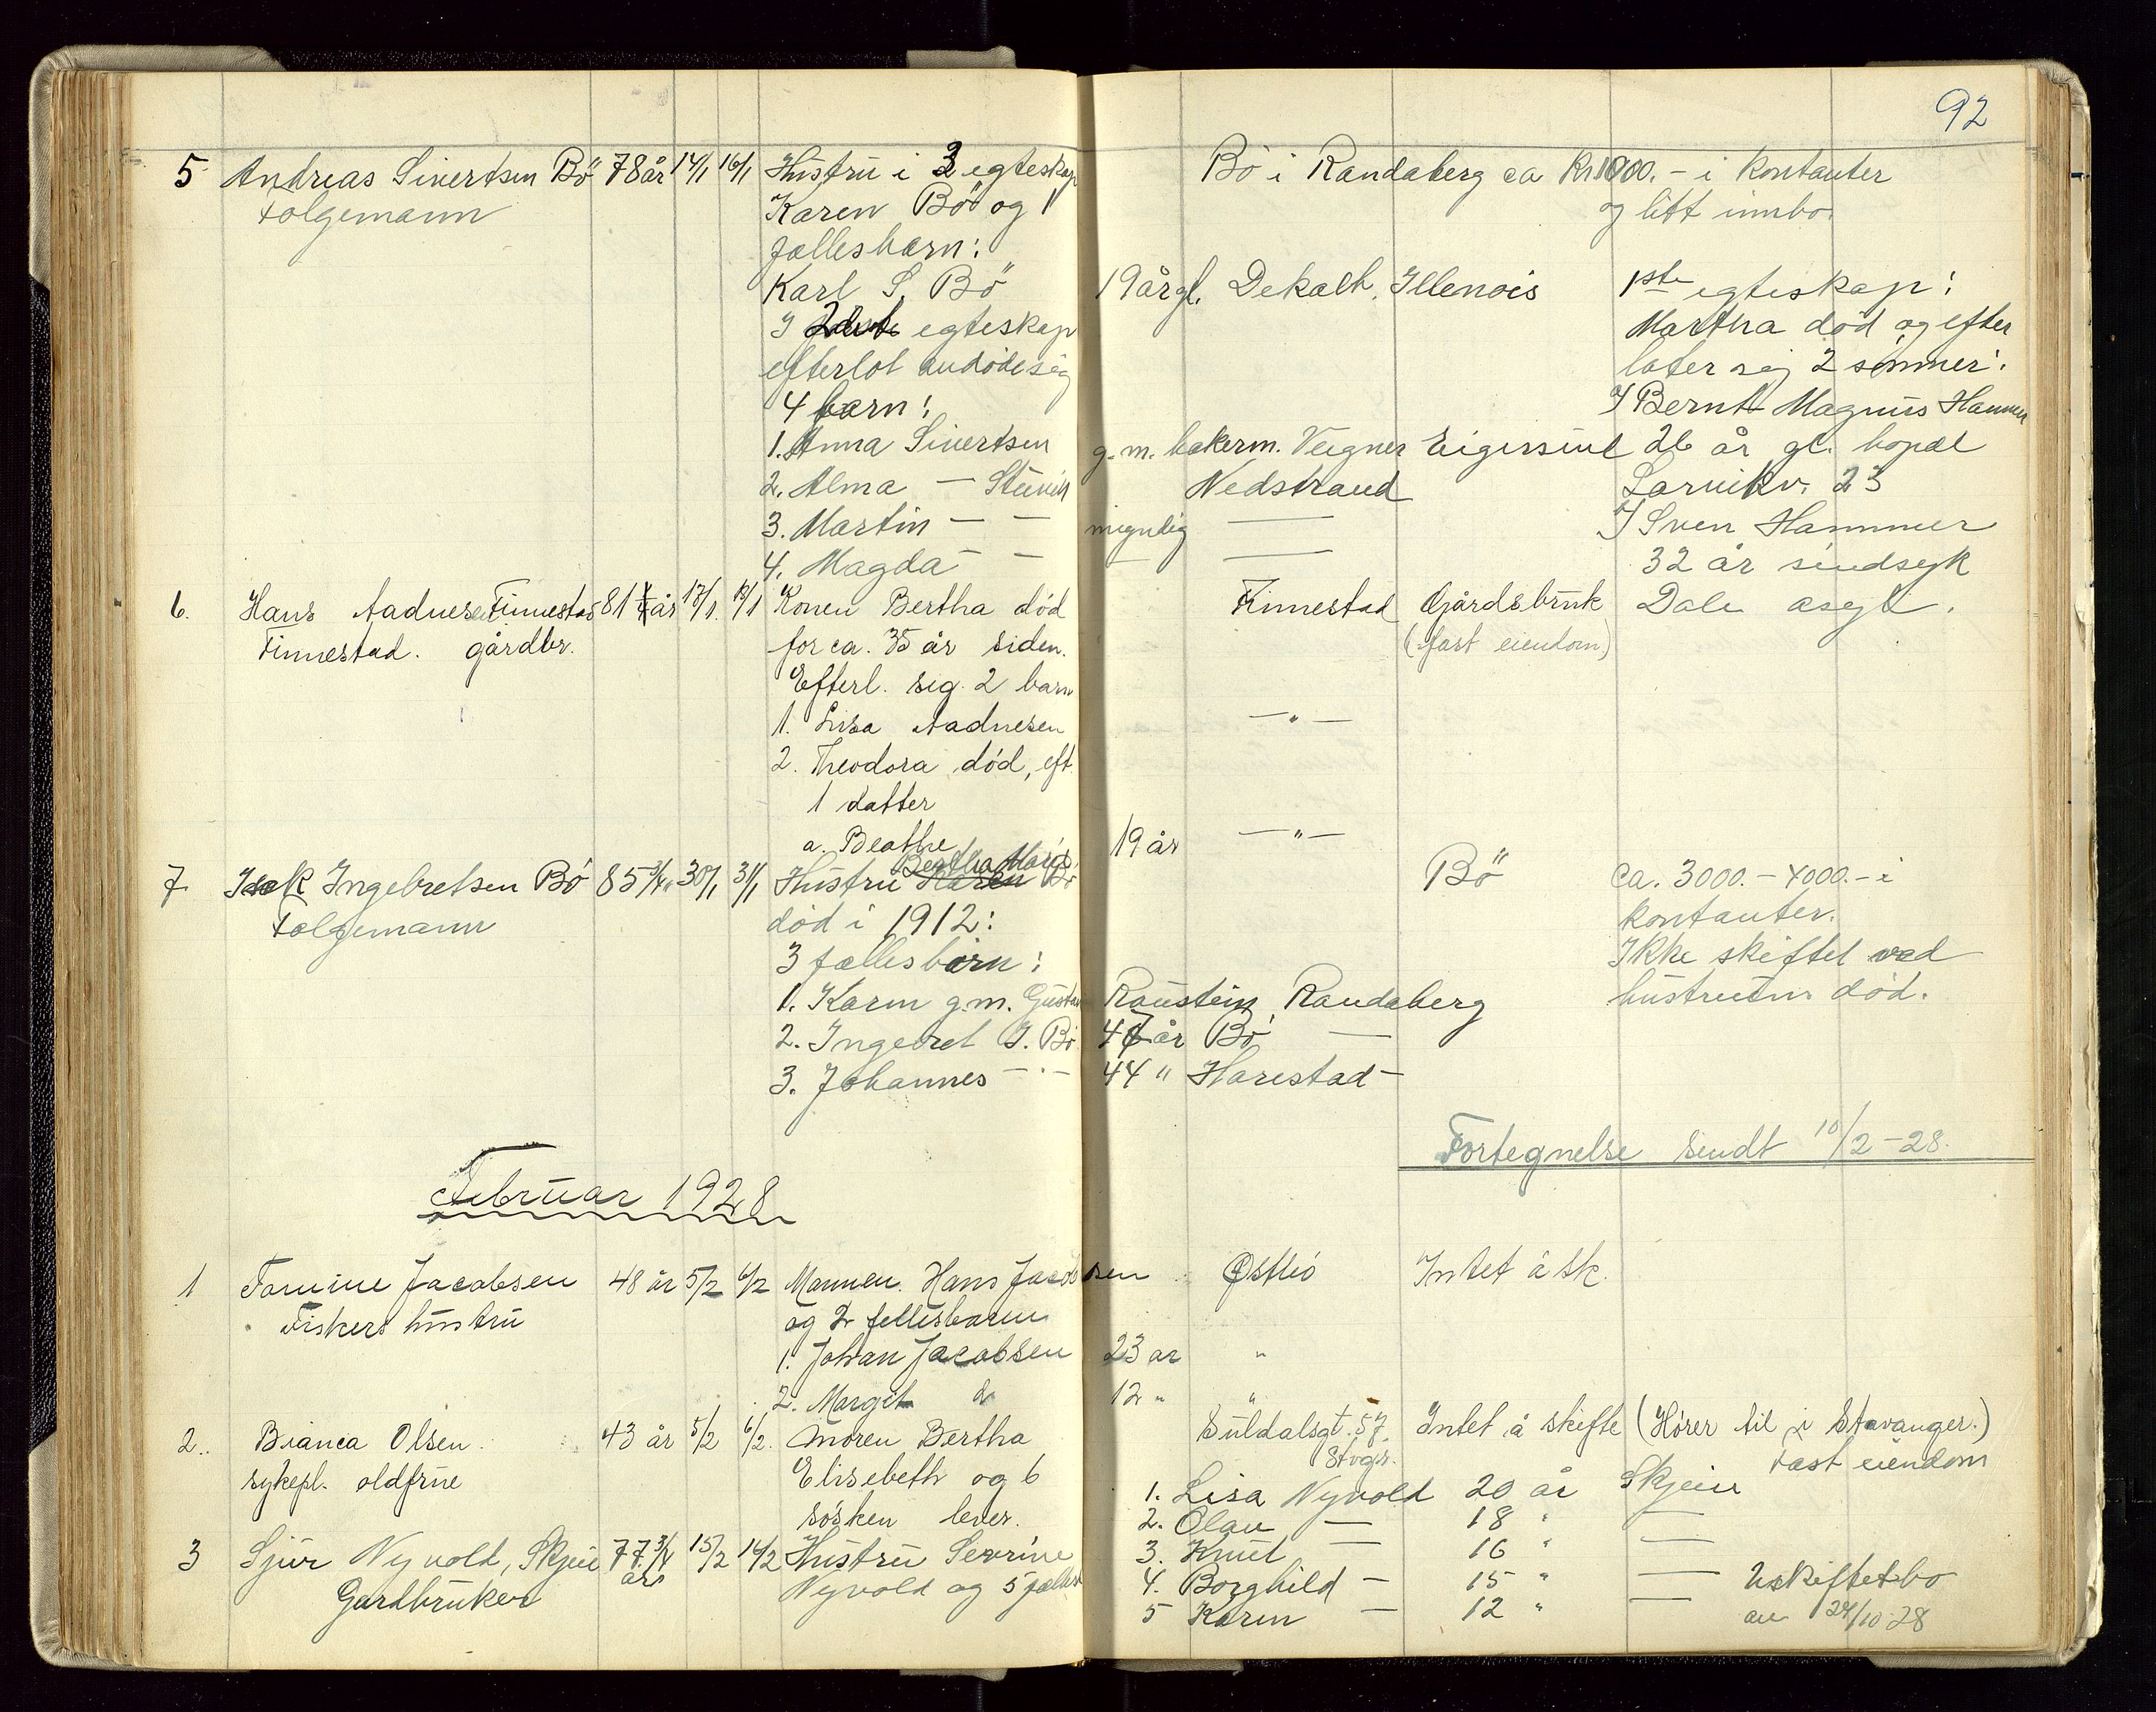 92
5 Andreas Sivertsen Bö 78 år 14/1 16/1 Hustru i 3 egteskap Bö i Randaberg ca Kr 1000.- i kontanter
Folgemann Karen Bö og 1 og litt innbo.
fællesbarn:
Karl S. Bö 19 år gl. Dekalb, Illenois 1ste egteskap:
I 2det egteskap Martha död og efter
efterlot avdöde sig later sig 2 sönner:
4 barn: Bernt Magnus Hammer
1. Anna Sivertsen g. m. bakerm. Veigner Eigersund 26 år gl. bopæl
2. Alma — Nedstrand Larvikv. 23
3. Martin — — myndig — Sven Hammer
4. Magda — — — 32 år sindsyk
6. Hans Aadnesen Finnestad 81 år 17/1 18/1 Konen Bertha död Finnestad Gårdsbruk Dale asyl.
Finnestad. gårdbr. for ca. 35 år siden. (fast eiendom)
Efterl. sig 2 barn
1. Lisa Aadnesen —"—
2. Theodora död, eft.
1 datter
a. Beathe 19 år —"—
Bertha Maria
7 Isak Ingebretsen Bö 85 3/4 " 30/1 31/1 Hustru Karen Bö Bö ca. 3000.- 4000.- i
Folgemann död i 1912: kontanter.
3 fællesbarn: Ikke skiftet ved
1. Karen g.m. Gustav Raustein, Randaberg hustruens död.
2. Ingebret I. Bö 47 år Bö —
3. Johannes —"— 44 " Harestad —
Fortegnelse sendt 10/2-28.
Februar 1928
1 Tomine Jacobsen 48 år 5/2 6/2 Mannen Hans Jacobsen Østhö Intet å sk.
Fiskers hustru og 2 fellesbarn
1. Johan Jacobsen 23 år "
2. Margit do 12 " "
2. Bianca Olsen 43 år 5/2 6/2. Moren Bertha Suldalsgt. 57, Intet å skifte (Hörer til i Stavanger.)
Stvgr.
sykepl. oldfrue Elisebeth og 6
fast eiendom
sösken lever. 1. Lisa Nyvold 20 år Skjeie
2. Olav — 18 " —
3 Sjur Nyvold, Skjeie 77 3/4 15/2 16/2 Hustru Severine 3. Knut — 16 " —
år
Gardbruker Nyvold og 5 fælles 4. Borghild — 15 " — Uskiftet bo
5 Karen — 12 " — av 24/10 28